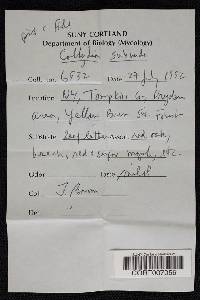 SUNY CORTLAND
Department of Biology (Mycology)
Collybia subnuda
Coll. no. 6832 Date 29 July 1996
Location NY, Tompkins Co. Dryden
area, Yellow Barn St. Forest
Substrate leaf litter Assoc. red oak,
beech, red & sugar maple, etc.
Odor Taste mild
Col. T. Baroni
Det.
CORT007056